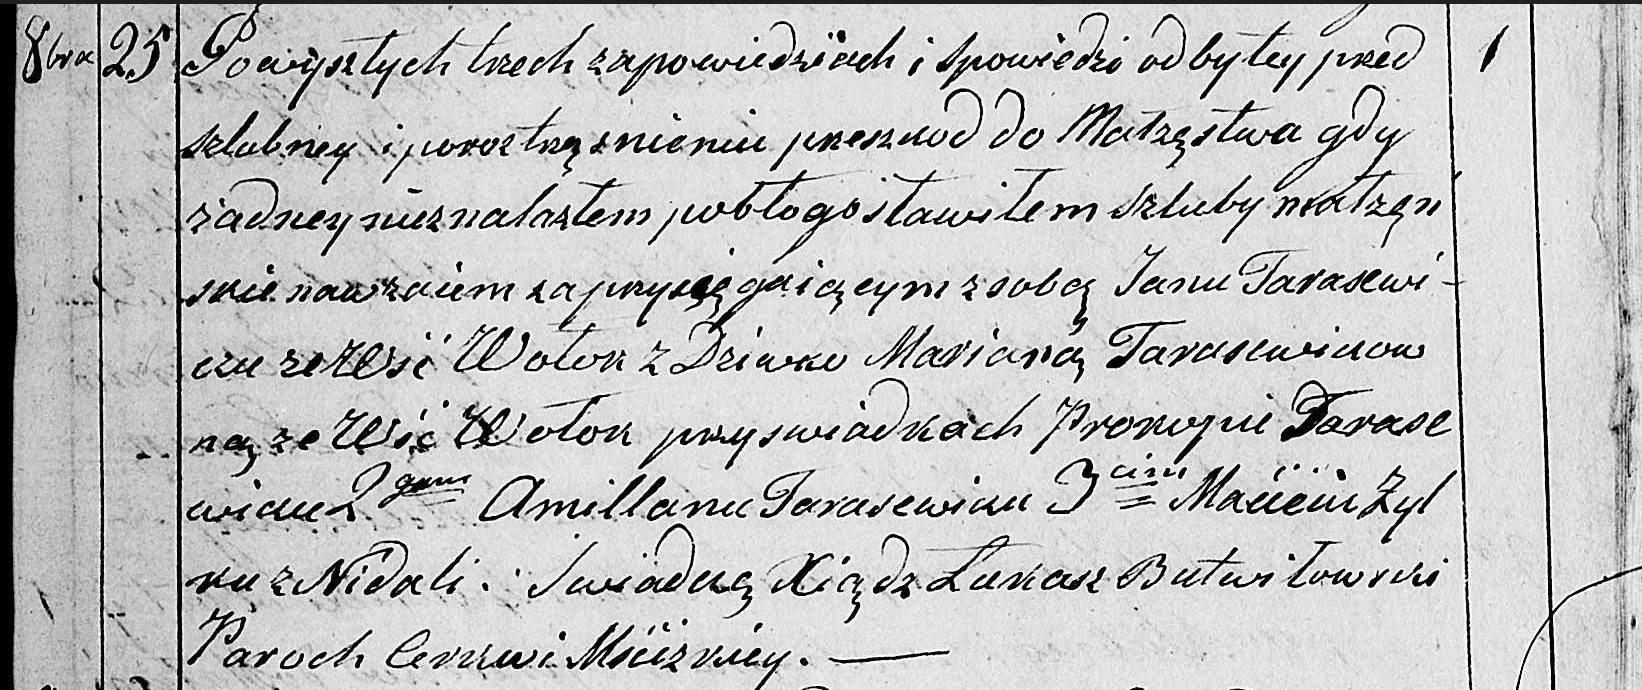 8bra 25 Po wyszłych trzech zapowiedziach i spowiedzi odbytey przed 1
szlubney i poroztrząsnieniu przeszkod do Małżęstwa gdy
żadney nieznalazłem pobłogosławiłem szluby małżęń
skie nawzaiem zaprzysięgaiącym z sobą Janu Tarasewi-
czu ze Wsi Wołok z Dziewko Marianą Tarasewiczow
ną ze Wsi Wołok przy swiadkach Prokopie Tarase
wiczu 2gim Amillanu Tarasewiczu 3cim Macieiu Żył
ku z Nidali. Swiadczę Xiądz Łukasz Butwiłowski
Paroch Cerkwi Mściżkiey.